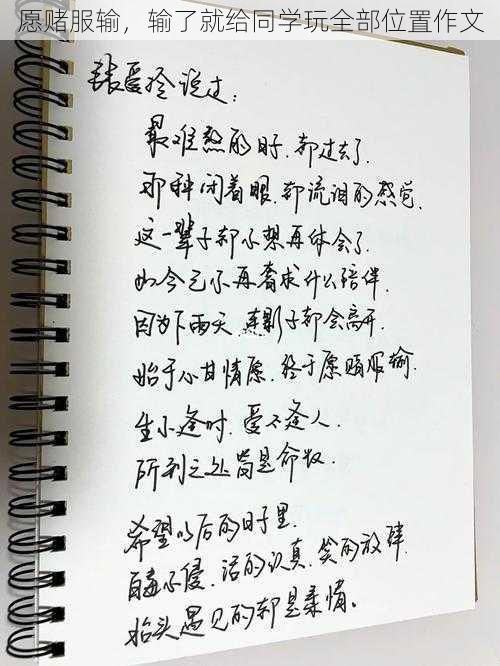 愿赌服输，输了就给同学玩全部位置作文
张爱玲说过：
最难熬的日子.都过去了.
那种闭着眼.都流泪的感觉.
这一辈子都不想再体会了.
如今已不再奢求什么陪伴.
因为下雨天.连影子都会离开.
始于心甘情愿.终于愿赌服输.
生不逢时.爱不逢人.
所到之处皆是命数.
希望以后的日子里.
百毒不侵.活的认真.笑的放肆.
抬头遇见的都是柔情。